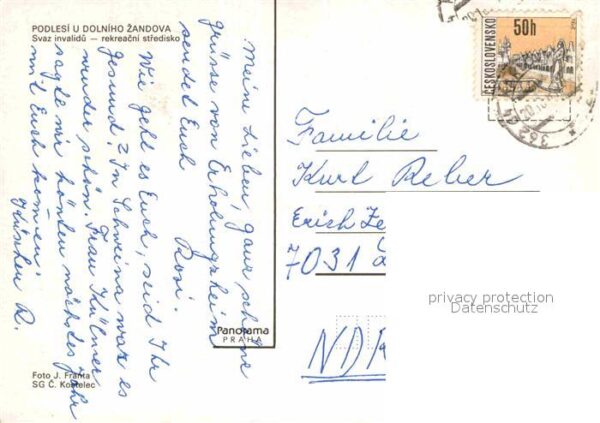 PODLESÍ U DOLNÍHO ŽANDOVA
Svaz invalidů – rekreační středisko
Meine Lieben, ganz schöne
grüsse von Erholungsheim
sendet Euch
Rosi.
Wie geht es Euch, seid Ihr
gesund? In Schweina war es
wunder schön. Frau
sagte mir könten nächstes Jahr
mit Euch kommen.
R.
Foto J. Franta
SG Č. Kostelec
Panorama
PRAHA
ČESKOSLOVENSKO
50h
Familie
Kurt Reber
Erich Ze
7031 L
NDR
privacy protection
Datenschutz